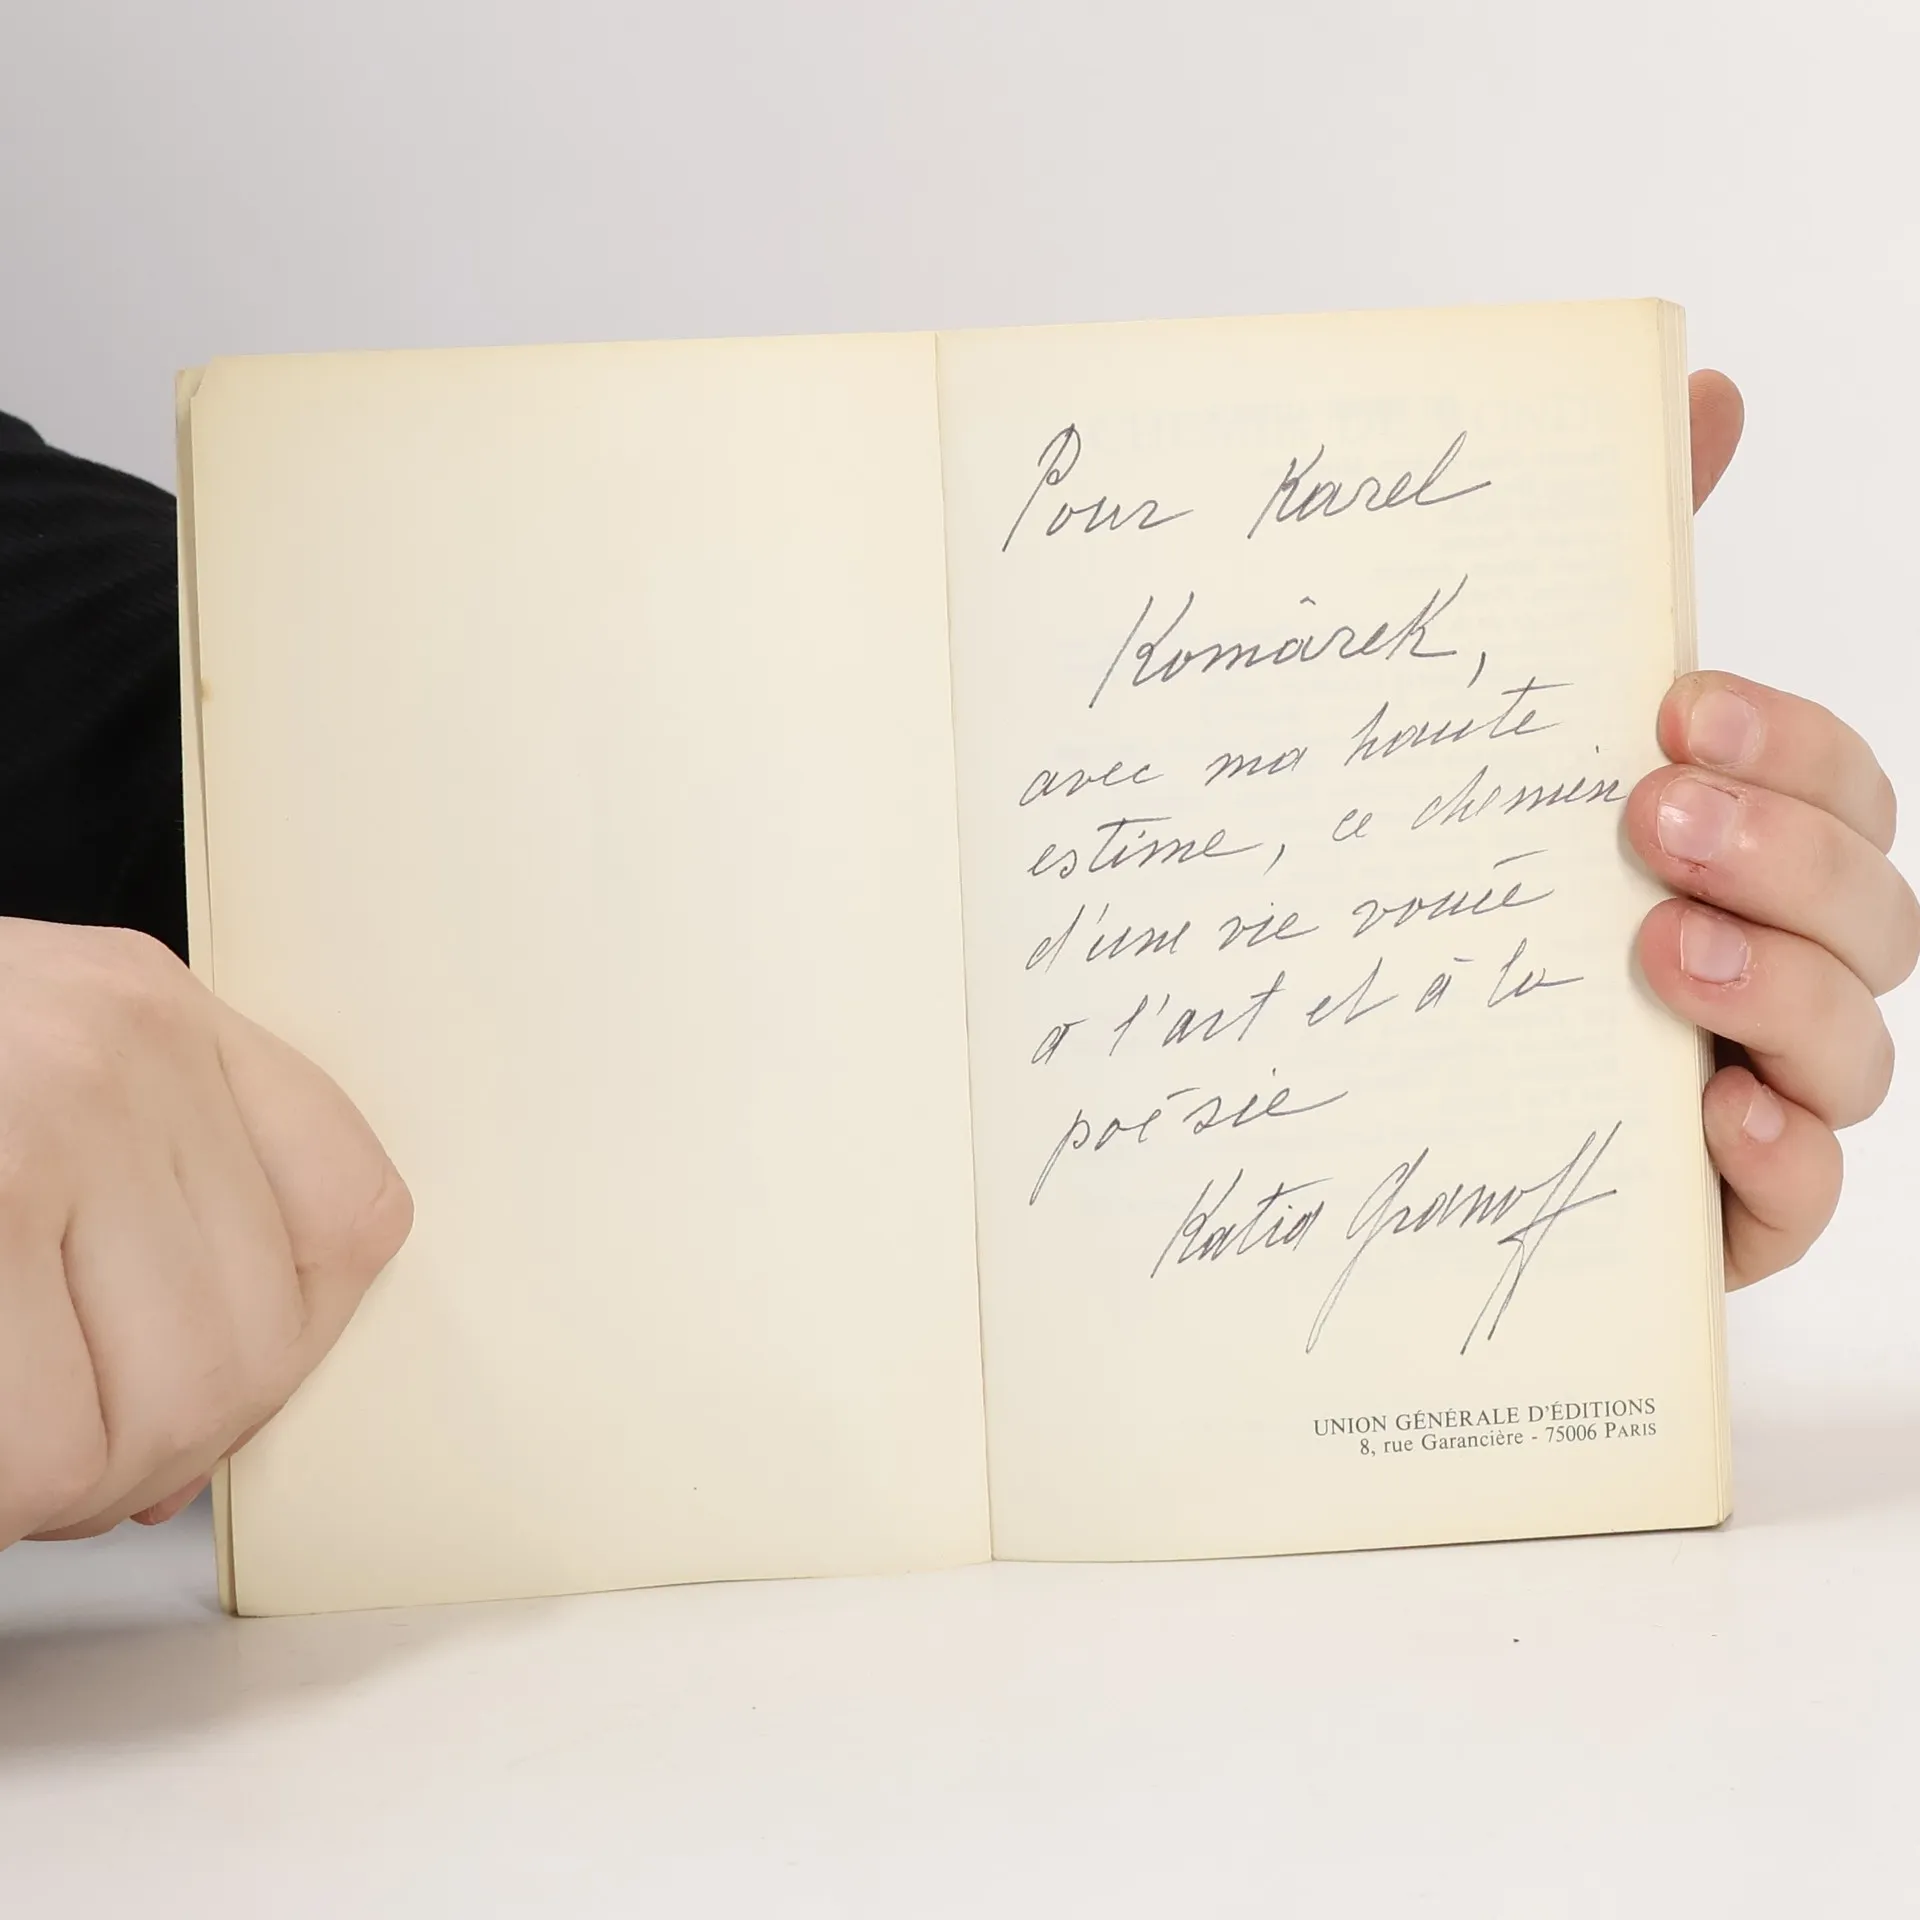 Pour Karel
Komârek,
avec ma haute
estime, ce chemin
d'une vie vouée
à l'art et à la
poésie
Katia Granoff
UNION GÉNÉRALE D'ÉDITIONS
8, rue Garancière - 75006 PARIS